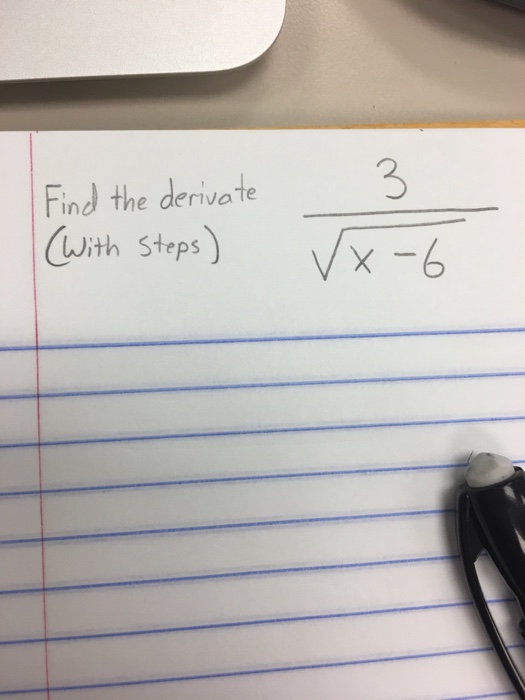 Find the derivate
(With Steps)
3
√x-6